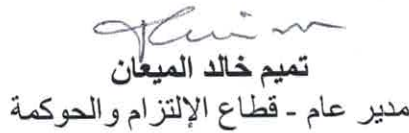 تميم خالد الميعان
مدير عام - قطاع الإلتزام والحوكمة